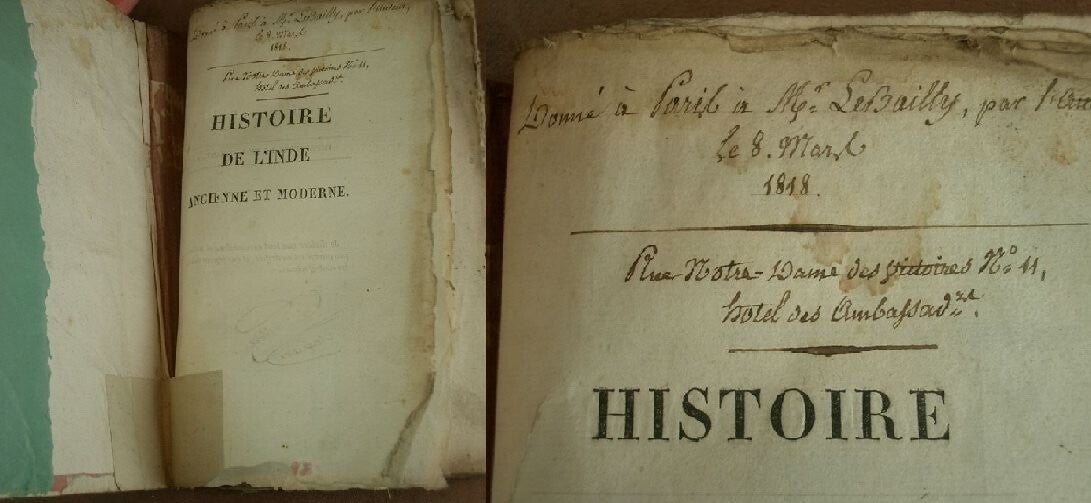 Donné à Paris à Mr. LeBailly, par l'auteur,
le 8. Mars
1818.
Rue Notre-Dame des victoires No. 11,
hotel des Ambassadrs.
HISTOIRE
DE L'INDE
ANCIENNE ET MODERNE.
Donné à Paris à Mr. LeBailly, par
le 8. Mars
1818.
Rue Notre-Dame des victoires No. 11,
hotel des Ambassadrs.
HISTOIRE